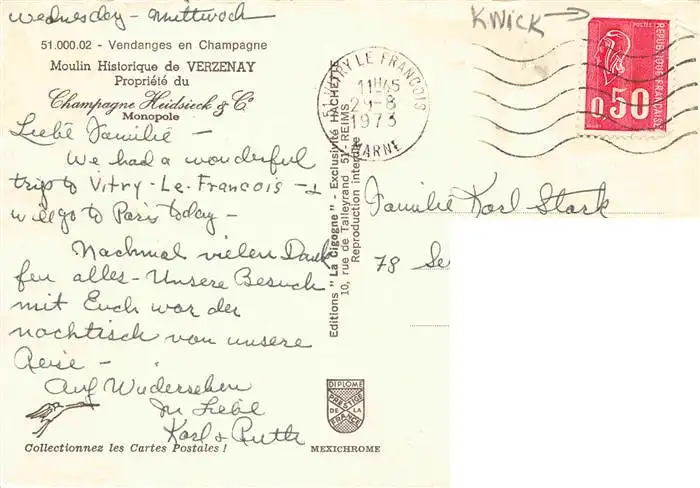 Wednesday - Mittwoch
51.000.02 - Vendanges en Champagne
Moulin Historique de VERZENAY
Propriété du
Champagne Heidsieck & Co
Monopole
Liebe Familie -
We had a wonderful
trip to Vitry-Le-Francois - &
will go to Paris today -
Nachmal vielen Dank
fen alles - Unsere Besuch
mit Euch war der
nachtisch von unsere
Reise -
Auf Wiedersehen
In Liebe
Karl & Ruth
Collectionnez les Cartes Postales !
Editions "La Cigogne" - Exclusivité HACHETTE
10, rue de Talleyrand 51-REIMS
Reproduction interdite
DIPLOME
PRESTIGE
DE LA
FRANCE
MEXICHROME
KWICK
51 VITRY LE FRANCOIS
11H45
29-8
1973
MARNE
POSTES
0,50
REPUBLIQUE FRANÇAISE
Familie Karl Stark
78 Se